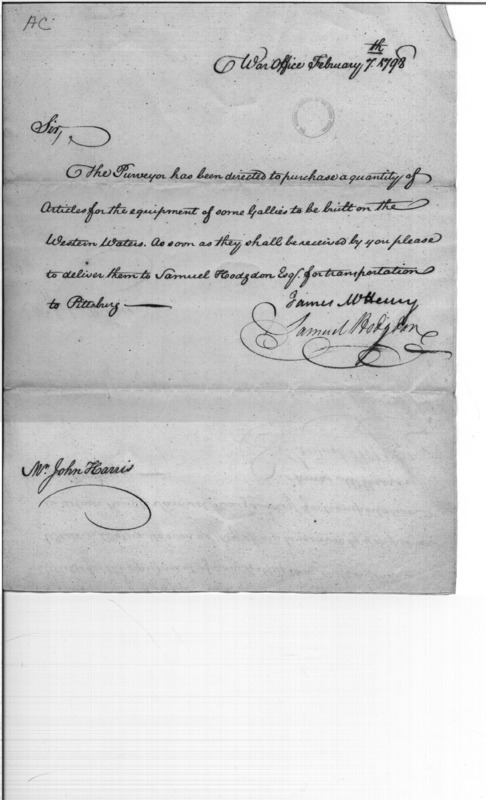 AC
War Office February 7th 1798
Sir,
The Purveyor has been directed to purchase a quantity of
Articles for the equipment of some Gallies to be built on the
Western Waters. As soon as they shall be received by you please
to deliver them to Samuel Hodgdon Esqr. for transportation
to Pittsburg —
James McHenry
Samuel Hodgdon
Mr. John Harris